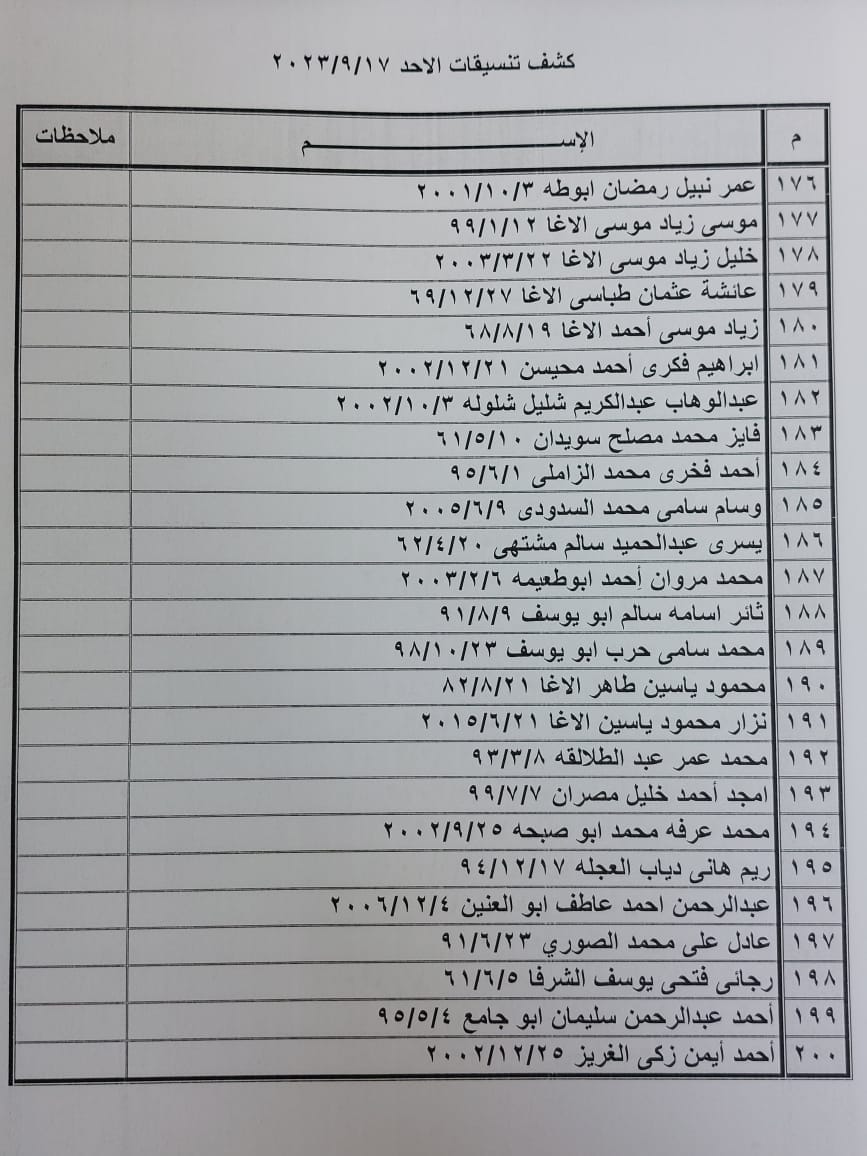 كشف تنسيقات الاحد ٢٠٢٣/٩/١٧
م الإســـم ملاحظات
١٧٦ عمر نبيل رمضان ابوطه ٢٠٠١/١٠/٣
١٧٧ موسى زياد موسى الاغا ٩٩/١/١٢
١٧٨ خليل زياد موسى الاغا ٢٠٠٣/٣/٢٢
١٧٩ عائشة عثمان طباسى الاغا ٦٩/١٢/٢٧
١٨٠ زياد موسى أحمد الاغا ٦٨/٨/١٩
١٨١ ابراهيم فكرى أحمد محيسن ٢٠٠٢/١٢/٢١
١٨٢ عبدالوهاب عبدالكريم شليل شلوله ٢٠٠٢/١٠/٣
١٨٣ فايز محمد مصلح سويدان ٦١/٥/١٠
١٨٤ أحمد فخرى محمد الزاملى ٩٥/٦/١
١٨٥ وسام سامى محمد السدودى ٢٠٠٥/٦/٩
١٨٦ يسرى عبدالحميد سالم مشتهى ٦٢/٤/٢٠
١٨٧ محمد مروان إحمد ابوطعيمه ٢٠٠٣/٢/٦
١٨٨ ثائر اسامه سالم ابو يوسف ٩١/٨/٩
١٨٩ محمد سامى حرب ابو يوسف ٩٨/١٠/٢٣
١٩٠ محمود ياسين طاهر الاغا ٨٢/٨/٢١
١٩١ نزار محمود ياسين الاغا ٢٠١٥/٦/٢١
١٩٢ محمد عمر عبد الطلالقه ٩٣/٣/٨
١٩٣ امجد أحمد خليل مصران ٩٩/٧/٧
١٩٤ محمد عرفه محمد ابو صبحه ٢٠٠٢/٩/٢٥
١٩٥ ريم هانى دياب العجله ٩٤/١٢/١٧
١٩٦ عبدالرحمن احمد عاطف ابو العنين ٢٠٠٦/١٢/٤
١٩٧ عادل على محمد الصوري ٩١/٦/٢٣
١٩٨ رجائى فتحى يوسف الشرفا ٦١/٦/٥
١٩٩ أحمد عبدالرحمن سليمان ابو جامع ٩٥/٥/٤
٢٠٠ أحمد أيمن زكى الغريز ٢٠٠٢/١٢/٢٥